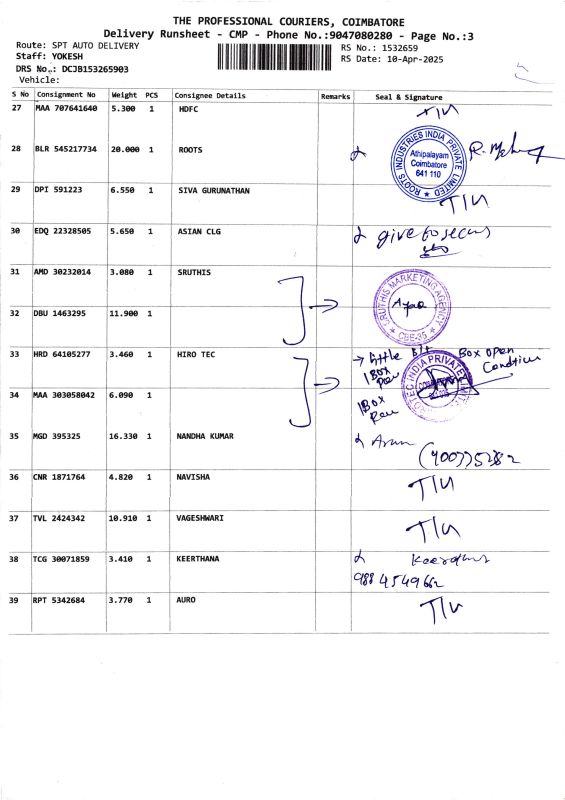 THE PROFESSIONAL COURIERS, COIMBATORE
Delivery Runsheet - CMP - Phone No.:9047080280 - Page No.:3
Route: SPT AUTO DELIVERY
RS No.: 1532659
Staff: YOKESH
RS Date: 10-Apr-2025
DRS No.: DCJB153265903
Vehicle:
S No Consignment No Weight PCS Consignee Details Remarks Seal & Signature
27 MAA 707641640 5.300 1 HDFC T/N
28 BLR 545217734 20.000 1 ROOTS
ROOTS INDUSTRIES INDIA PRIVATE LIMITED
Athipalayam
Coimbatore
641 110
29 DPI 591223 6.550 1 SIVA GURUNATHAN T/N
30 EDQ 22328505 5.650 1 ASIAN CLG give to
31 AMD 30232014 3.080 1 SRUTHIS
SRUTHIS MARKETING AGENCY
CBE-35
32 DBU 1463295 11.900 1
33 HRD 64105277 3.460 1 HIRO TEC
→ little
Box open
Condition
1 Box
34 MAA 303058042 6.090 1
1 Box
35 MGD 395325 16.330 1 NANDHA KUMAR Arun
36 CNR 1871764 4.820 1 NAVISHA T/N
37 TVL 2424342 10.910 1 VAGESHWARI T/N
38 TCG 30071859 3.410 1 KEERTHANA
39 RPT 5342684 3.770 1 AURO T/N